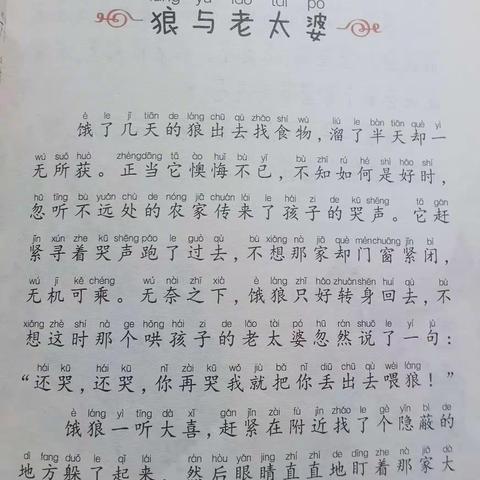 láng yǔ lǎo tài pó
狼与老太婆
è le jǐ tiān de láng chū qù zhǎo shí wù liù le bàn tiān què yí
饿了几天的狼出去找食物，溜了半天却一
wú suǒ huò zhèngdāng tā ào huǐ bù yǐ bù zhī rú hé shì hǎo shí
无所获。正当它懊悔不已，不知如何是好时，
hū tīng bù yuǎn chù de nóng jiā chuán lái le hái zi de kū shēng tā gǎn
忽听不远处的农家传来了孩子的哭声。它赶
jǐn xún zhe kū shēng pǎo le guò qù bù xiǎng nà jiā què ménchuāng jǐn bì
紧寻着哭声跑了过去，不想那家却门窗紧闭，
wú jī kě chéng wú nài zhī xià è láng zhǐ hǎo zhuǎnshēn huí qù bù
无机可乘。无奈之下，饿狼只好转身回去，不
xiǎng zhè shí nà ge hǒng hái zi de lǎo tài pó hū rán shuō le yí jù
想这时那个哄孩子的老太婆忽然说了一句：
hái kū hái kū nǐ zài kū wǒ jiù bǎ nǐ diū chū qù wèi láng
“还哭，还哭，你再哭我就把你丢出去喂狼！”
è láng yì tīng dà xǐ gǎn jǐn zài fù jìn zhǎo le gè yǐn bì de
饿狼一听大喜，赶紧在附近找了个隐蔽的
dì fang duǒ le qǐ lái rán hòu yǎn jing zhí zhí de dīng zhe nà jiā dà
地方躲了起来，然后眼睛直直地盯着那家大